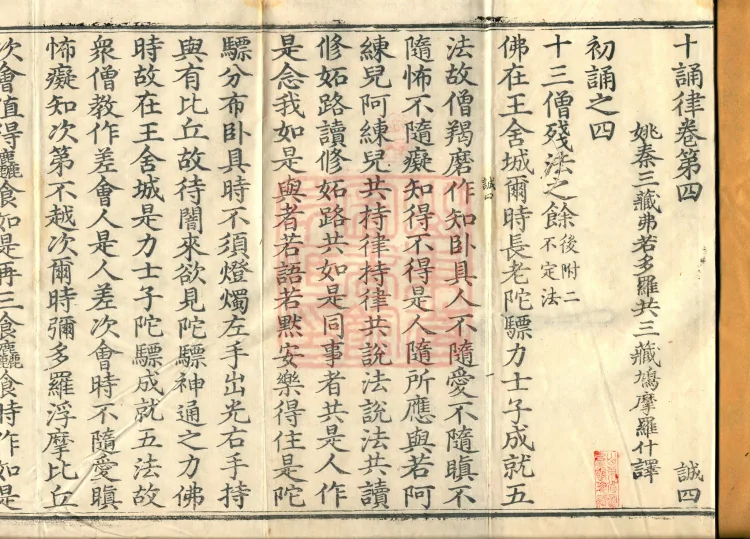 十誦律卷第四 誠四
姚秦三藏弗若多羅共三藏鳩摩羅什譯
初誦之四
十三僧殘法之餘後附二不定法
佛在王舍城爾時長老陀驃力士子成就五
誠口
法故僧羯磨作知卧具人不隨愛不隨瞋不
隨怖不隨癡知得不得是人隨所應與若阿
練兒阿練兒共持律持律共說法說法共讀
修妬路讀修妬路共如是同事者共是人作
是念我如是與者若語若默安樂得住是陀
驃分布卧具時不須燈燭左手出光右手持
與有比丘故待闇來欲見陀驃神通之力佛
時故在王舍城是力士子陀驃成就五法故
衆僧教作差會人是人差次會時不隨愛瞋
怖癡知次第不越次爾時彌多羅浮摩比丘
次會值得麤食如是再三食麤食時作如是